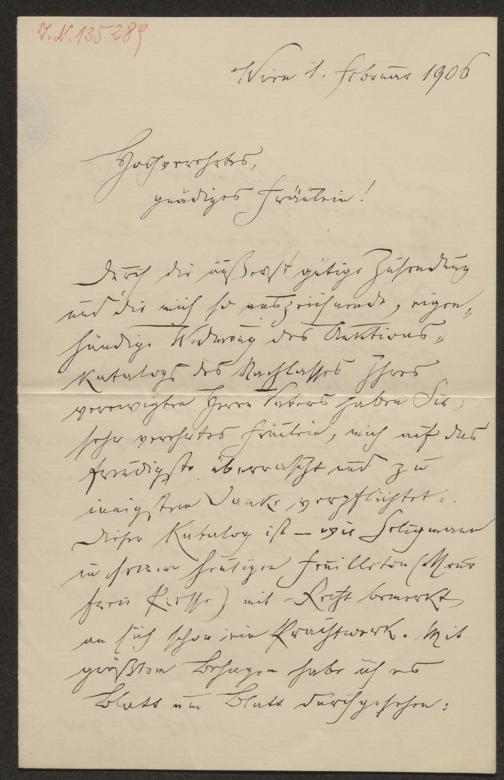 J.N. 135289
Wien 1. Februar 1906
Hochverehrtes,
gnädiges Fräulein!
Durch die äußerst gütige Zusendung
und die mich so auszeichnende, eigen-
händige Widmung des Auktions-
Katalogs des Nachlasses Ihres
verewigten Herrn Vaters haben Sie,
sehr verehrtes Fräulein, mich auf das
freudigste überrascht und zu
innigstem Danke verpflichtet.
Dieser Katalog ist – wie Seligmann
in seinem heutigen Feuilleton (Neue
freie Presse) mit Recht bemerkt
an sich schon ein Prachtwerk. Mit
größtem Behagen habe ich es
Blatt um Blatt durchgesehen: